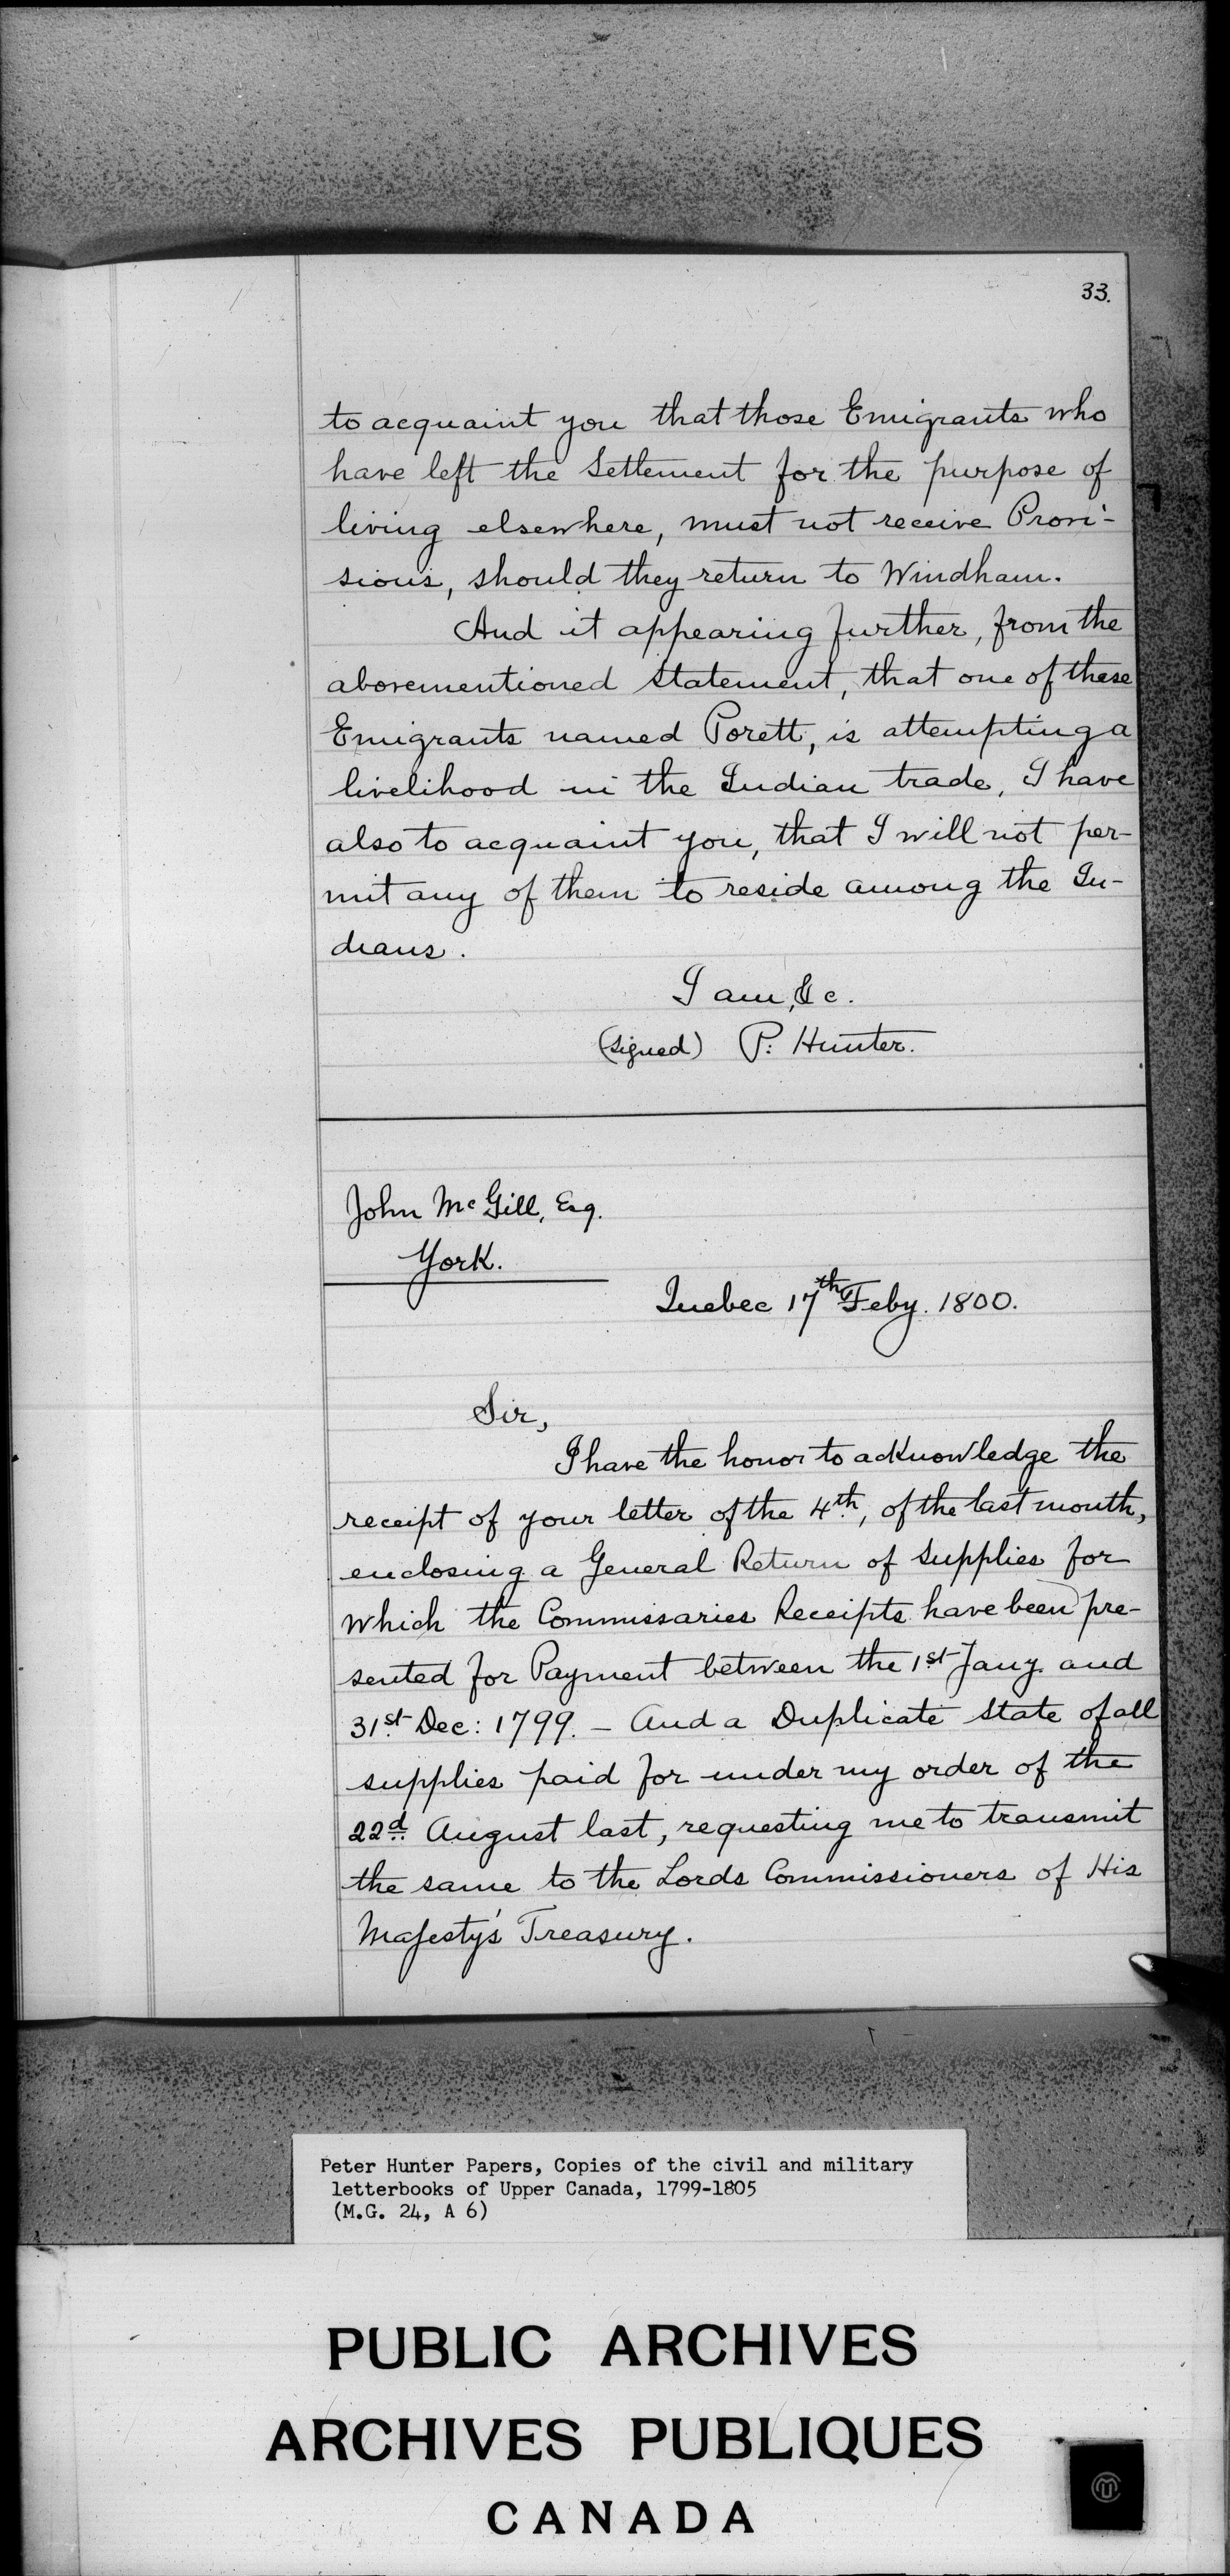 33.
to acquaint you that those Emigrants who
have left the Settlement for the purpose of
living elsewhere, must not receive Provi-
sions, should they return to Windham.
And it appearing further, from the
abovementioned Statement, that one of these
Emigrants named Porett, is attempting a
livelihood in the Indian trade, I have
also to acquaint you, that I will not per-
mit any of them to reside among the In-
dians.
I am, &c.
(signed) P: Hunter.
John McGill, Esq.
York.
Quebec 17th Feby. 1800.
Sir,
I have the honor to acknowledge the
receipt of your letter of the 4th, of the last month,
enclosing a General Return of Supplies for
which the Commissaries Receipts have been pre-
sented for Payment between the 1st Jany. and
31st Dec: 1799. - And a Duplicate State of all
supplies paid for under my order of the
22d. August last, requesting me to transmit
the same to the Lords Commissioners of His
Majesty's Treasury.
Peter Hunter Papers, Copies of the civil and military
letterbooks of Upper Canada, 1799-1805
(M.G. 24, A 6)
PUBLIC ARCHIVES
ARCHIVES PUBLIQUES
CANADA